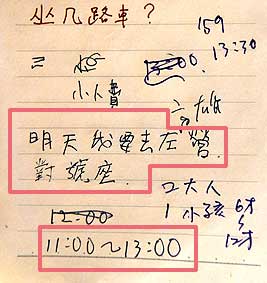 坐几路車？
159
13:30
小人貴
高雄
明天我要去左營
對號座.
2大人
1小孩 6才
5
12才
12:00
11:00~13:00